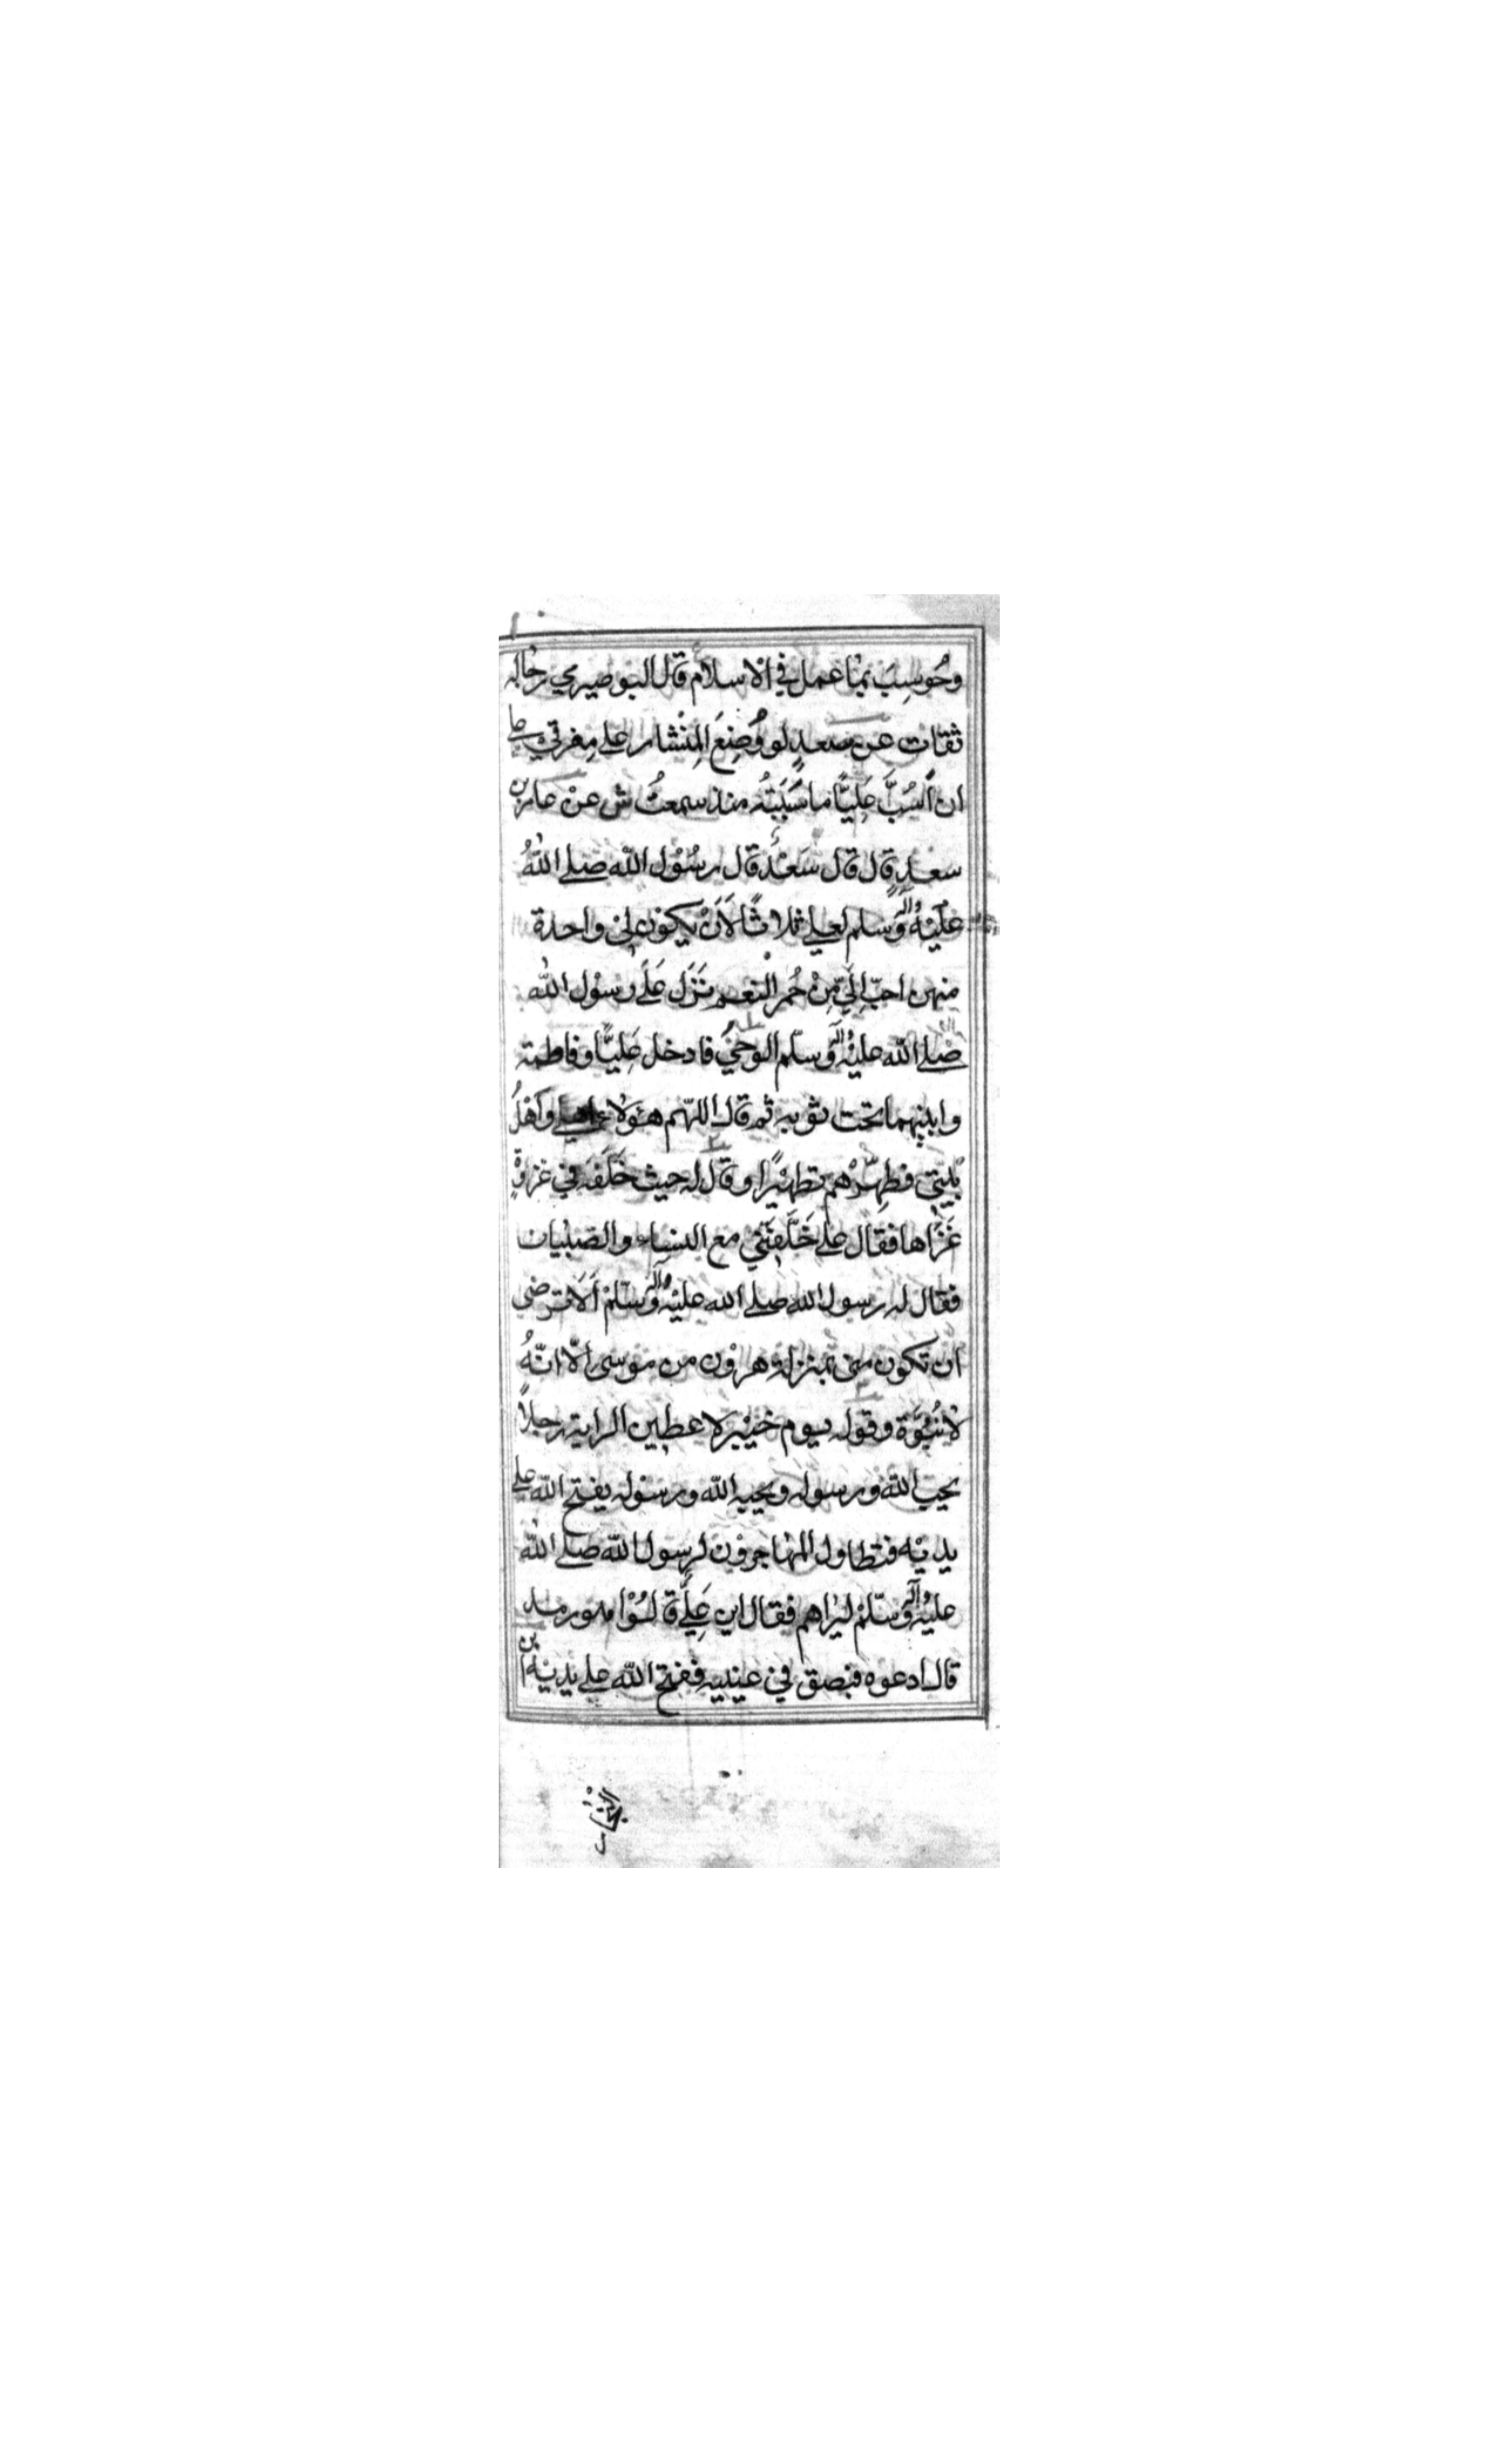 وحُوسِبَ بما عمل في الاسلام قال البوصيري رجاله
ثقات عن سعدٍ لو وُضِعَ المِنْشار على مِفرقي على
ان أسُبَّ عَلِيًّا ما سَبَبْتُه منذ سمعتُ ش عنْ عامر بن
سعدٍ قال قال سَعْدٌ قال رسُوْل اللّه صلى اللّهُ
عليْهِ وآله وَسلم لعلي ثلاثًا لَاَنْ يكون لي واحدة
منهن احبّ اِلَيَّ مِنْ حُمر النعم نَزَلَ عَلَى رسوْل اللّه
صلى اللّه عليْهِ وآله وَسلّم الوحيُ فادخل عَلِيًّا وفاطمة
وابنيهما تحت ثوبه ثم قال اللّهم هؤلاء اهلي وَاَهْلُ
بَيْتي فطهِّرْهم تطهيْرًا وقال له حيث خَلَّفَه في غزاوةٍ
غَزَاها فقال علي خَلَّفتَني مع النساء والصبيان
فقال له رسول اللّه صلى اللّه عليْهِ وآله وَسلّمْ اَلَا ترضى
ان تكون مني بمنزلة هرون من موسى الّا انّهُ
لا نُبُوَّة وقوله يوم خيْبر لاعطين الراية رجلاً
يحب اللّه ورسوله ويحبه اللّه ورسوله يفتح اللّه على
يديْه فتطاول المهاجرون لرسول اللّه صلى اللّه
عليْهِ وآله وَسلّمْ ليراهم فقال اين عَلِيٌّ قالُوْا هو رمد
قال ادعوه فبصق في عينيه ففتح اللّه على يديْه ابن